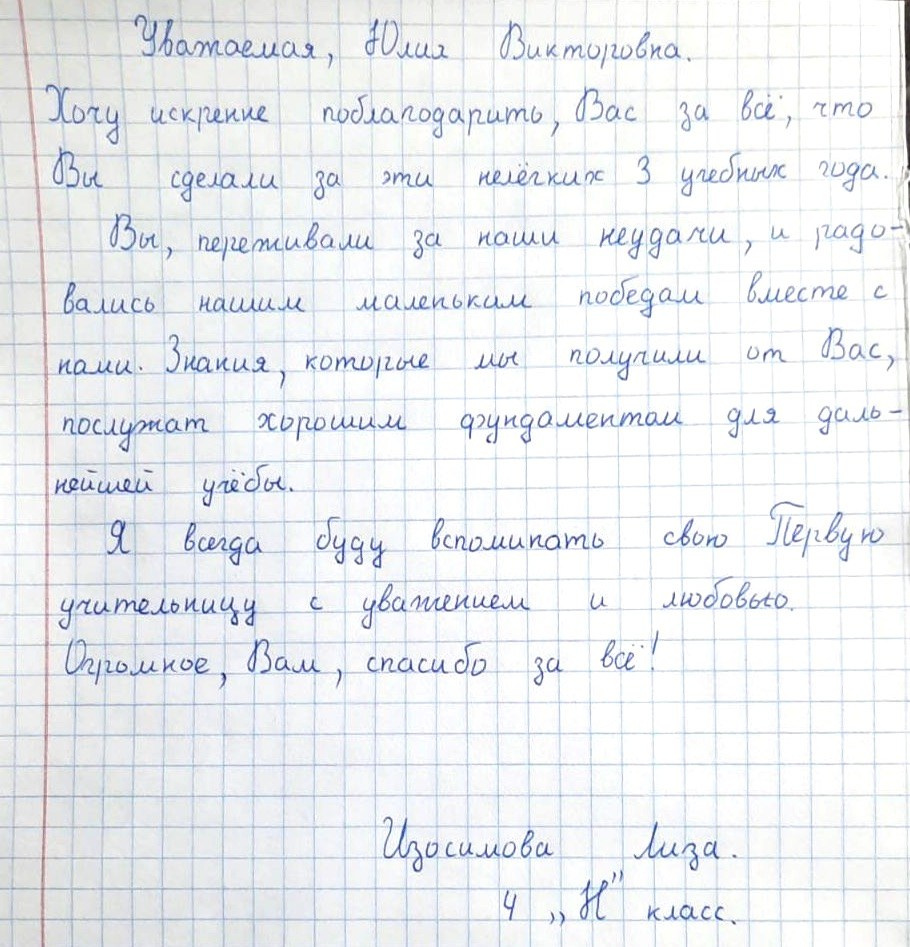 Уважаемая, Юлия Викторовна.
Хочу искренне поблагодарить, Вас за всё, что
Вы сделали за эти нелёгких 3 учебных года.
Вы, переживали за наши неудачи, и радо-
вались нашим маленьким победам вместе с
нами. Знания, которые мы получили от Вас,
послужат хорошим фундаментом для даль-
нейшей учёбы.
Я всегда буду вспоминать свою Первую
учительницу с уважением и любовью.
Огромное, Вам, спасибо за всё!
Изосимова Лиза.
4 „Н" класс.